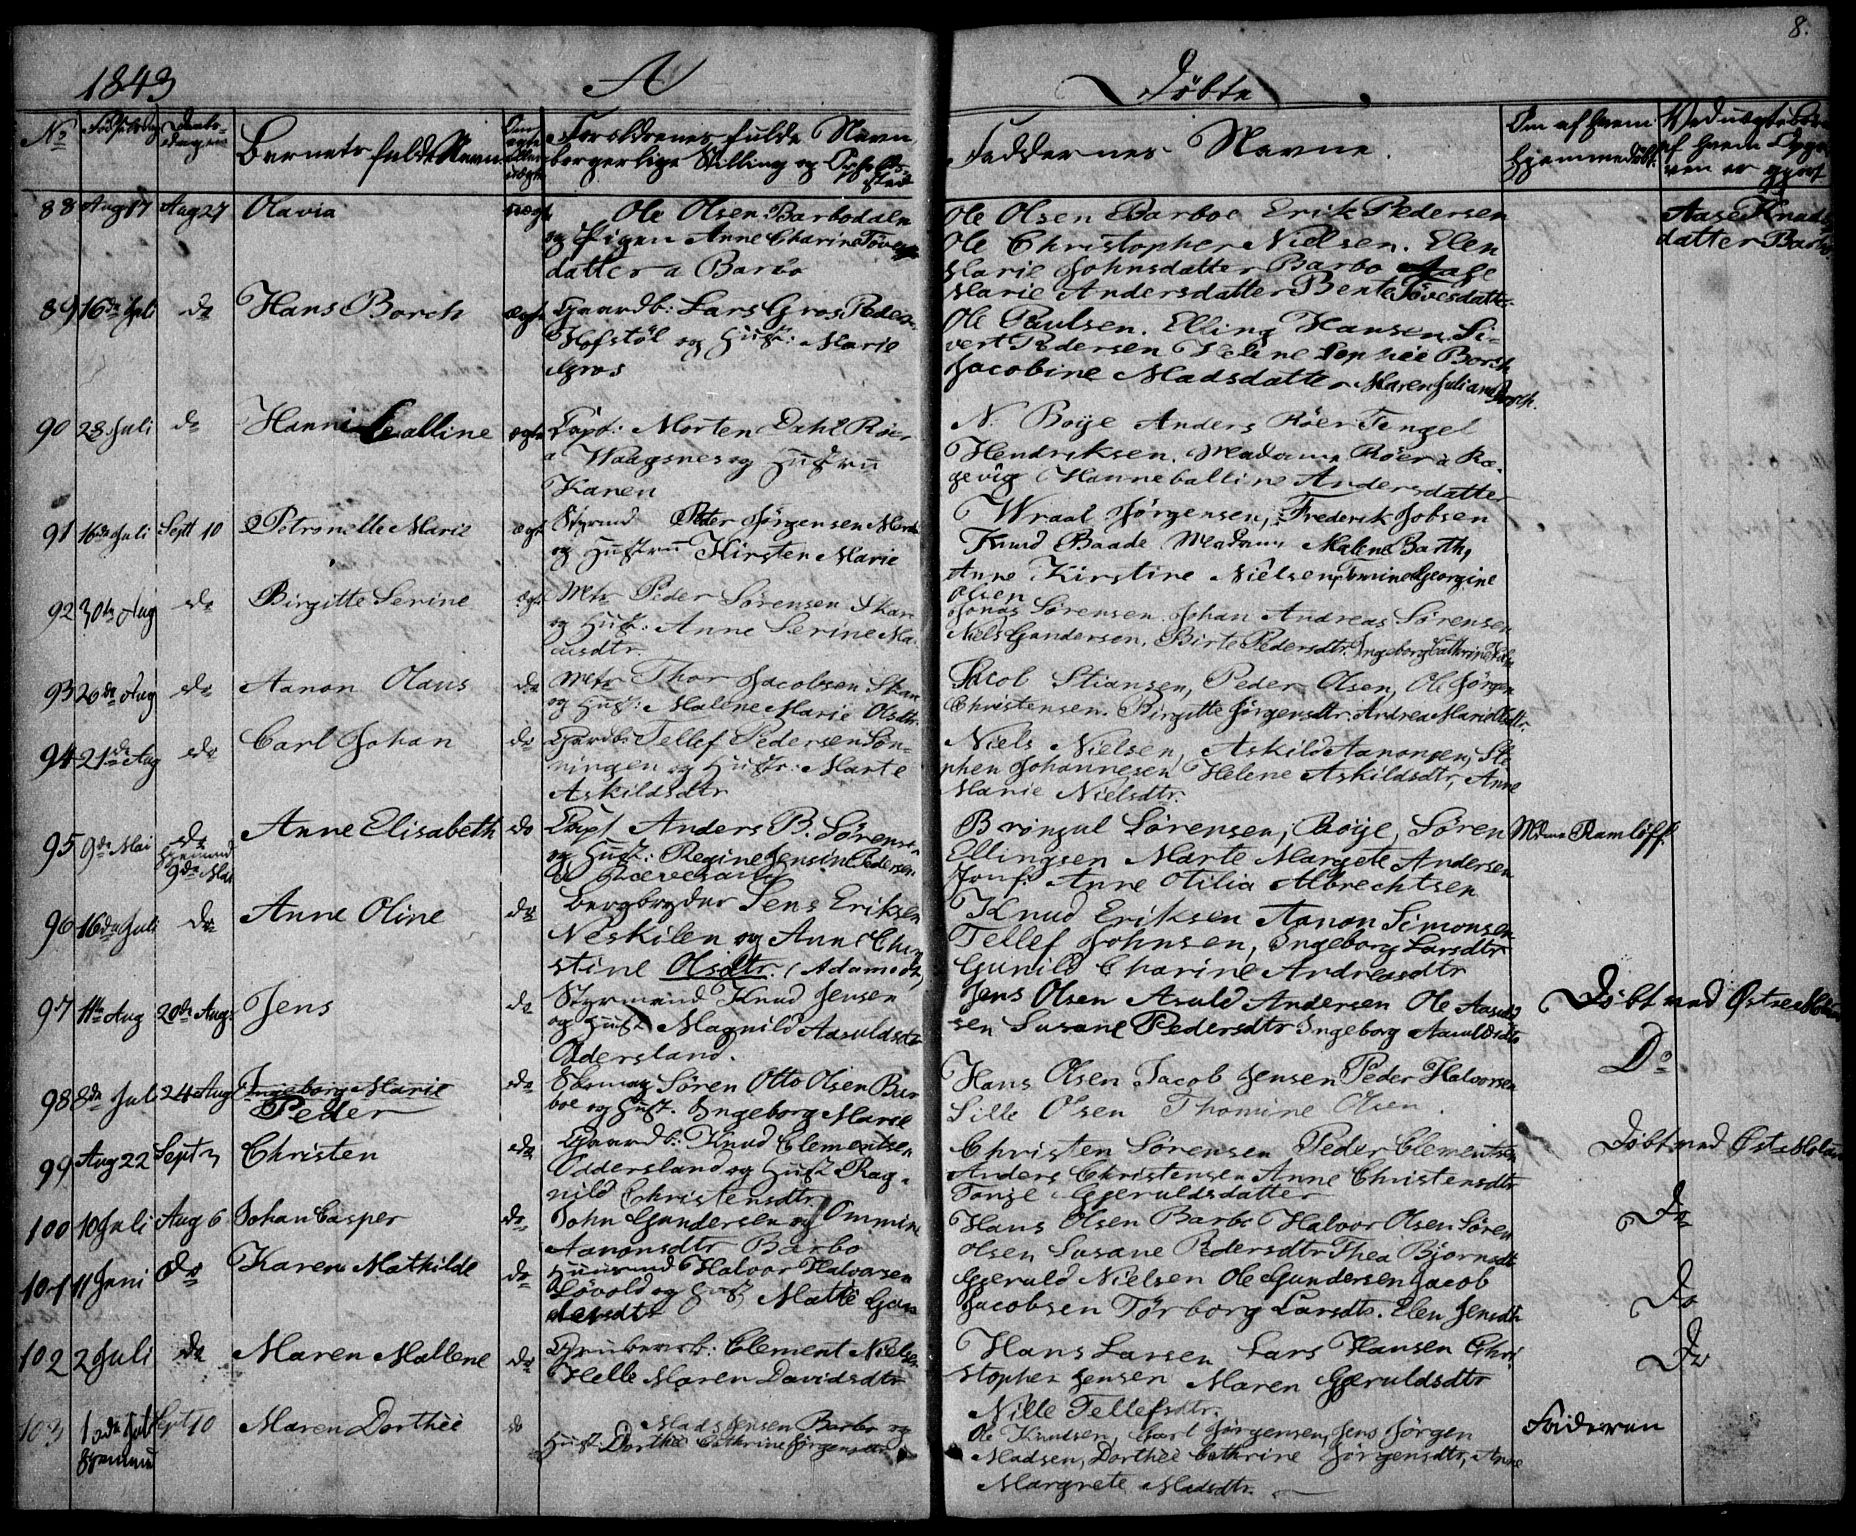 8.
1843 A Döbte
No Födselsdag Daabsdagen Barnets fulde Navn Om ægte eller uægte Forældrenes fulde Navn, borgerlige Stilling og Opholdssted Faddernes Navne. Om af hvem hjemmedöbt. Ved uægte Börn af hvem Opgaven er gjort
88 Aug 17 Aug 27 Olavia uægte Ole Olsen Barbodalen
og Pigen Anne Charine Töves
datter a Barbo
Ole Olsen Barboe Erik Pedersen
Ole Christopher Nielsen. Elen
Marie Johnsdatter Barbo Aase
Marie Andersdatter Bente Tövesdatter
Aase Knuds
datter Barbo
89 16de Juli do Hans Borch ægte Gaardb: Lars Gros Peders.
Hofstöl og Hust: Marie
Gros
Ole Paulsen. Elling Hansen. Si-
vert Pedersen Helene Sophie Borch
Jacobine Madsdatter Maren Juliane Borch.
90 23 Juli do Hanne Calline ægte Capt: Morten Dahl Röer
a Waagsnes og Hustru
Karen
N. Boije Anders Röer Tengel
Hendriksen. Madame Röer a Ra-
gevig Hanne Calline Andersdatter
91 16de Juli Sept 10 Petronelle Marie ægte Styrmd Peder Jörgensen
og Hustru Kirsten Marie
Wraal Jörgensen, Frederik Jobsen
Knud Baade Madame Malene Barth,
Anne Kirstine Nielsen, Georgine
Olsen
92 30te Aug do Birgitte Serine ægte Mtr Peder Sörensen Skar
og Hust: Anne Serine Ma-
usdtr.
Jonas Sörensen. Johan Andreas Sörensen
Niels Gundersen, Birte Pedersdtr. Ingeborg Cathrine
93 26de Aug do Aanon Olaus do Mtr Thor Jacobsen Skar
og Hust: Malene Marie Olsdtr
Jacob Stiansen, Peder Olsen, Ole Jörgen
Christensen. Birgitte Jörgensdtr. Andrea Marie
94 21de Aug do Carl Johan do Gardb: Tellef Pedersen Lön-
ningen og Hustr: Marte
Askildsdtr
Niels Nielsen, Askild Aanonsen, Ste
phen Johannesen Helene Askildsdtr, Anne
Marie Nielsdtr.
95 9de Mai do Anne Elisabeth do Capt Anders B. Sörensen
hjemmed 9de Mai
og Hust: Regine Jensine Pedersen
a Rævesand
Boije, Sören
Ellingsen Marte Margete Andersen
Jomf. Anne Otilia Albrechtsen
Mdme Ramlöff.
96 16de Juli do Anne Oline do Bergbryder Jens Eriksen
Neskilen og Anne Chri
stine Olsdtr. (Adamsdtr)
Knud Eriksen Aanon Simonsen
Tellef Johnsen, Ingeborg Larsdtr
Gunild Charine Andreasdtr
97 11te Aug 20de Aug: Jens do Styrmand Knud Jensen
og Hust Magnild Aasuldsdtr
Oddersland.
Jens Olsen Asuld Andersen Ole Aasuld
sen Susane Pedersdtr Ingeborg Aasuldsdtr
Döbt ved Östre Moland
98 8de Juli 24 Aug Ingeborg Marie do Sören Otto Olsen Bar
Peder
boe og Hust. Ingeborg Marie
Hans Olsen Jacob Jensen Peder Halvorsen
Sille Olsen Thomine Olsen.
Do
99 Aug 22 Sept 3 Christen do Gaardb: Knud Clementsen
Oddersland og Hust Rag-
nild Christensdtr
Christen Sörensen Peder Clementsen
Anders Christensen Anne Christensdtr
Tonje Gjeruldsdatter
Döbt ved Öst. Moland
100 10 Juli Aug 6 Johan Casper do John Gundersen og Ommine
Aanonsdtr Barbo
Hans Olsen Barbo Halvor Olsen Sören
Olsen Susane Pedersdtr Thea Bjornsdtr
Do
101 11 Juni do Karen Mathilde do Huusmand Halvor Halvorsen
Lövold og Hust Mathe Gun
dersdtr
Gjeruld Nielsen Ole Gundersen Jacob
Jacobsen Törborg Larsdtr. Elen Jensdtr
Do
102 2 Juli do Maren Mallene do Grubearb: Clement Nielsen
Helle Maren Davidsdtr
Hans Larsen Lars Hansen Chri
stopher Jensen Maren Gjeruldsdtr
Nille Tellefsdtr.
Do
103 Juli Sept 10 Maren Dorthée do Mads Jensen Barbo og
hjemmed
Hust: Dorthe Cathrine Jörgensdtr
Ole Knudsen, Carl Jörgensen, Jens Jörgen
Madsen, Dorthée Cathrine Jörgensdtr, Anne
Margrete Madsdtr.
Faderen